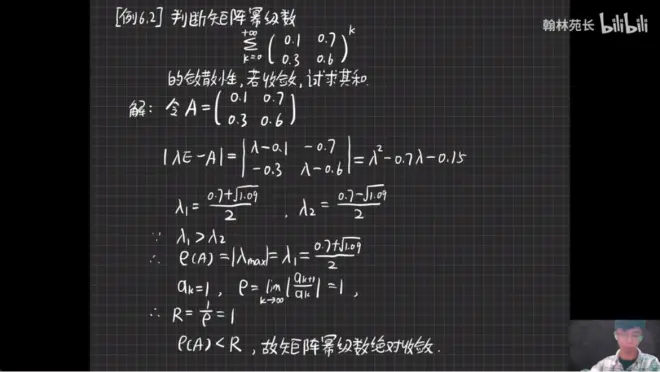 [例6.2] 判断矩阵幂级数
翰林苑长 bilibili
+∞ Σ k=0 ( 0.1 0.7 0.3 0.6 )^k
的敛散性,若收敛,试求其和.
解: 令 A = ( 0.1 0.7 0.3 0.6 )
|λE-A| = | λ-0.1 -0.7 -0.3 λ-0.6 | = λ²-0.7λ-0.15
λ₁ = (0.7+√1.09)/2 , λ₂ = (0.7-√1.09)/2
∵ λ₁>λ₂
∴ ρ(A)=|λmax|=λ₁=(0.7+√1.09)/2
ak=1 , ρ=lim k→∞ |ak+1/ak|=1 ,
∴ R=1/ρ=1
ρ(A)<R , 故矩阵幂级数绝对收敛.